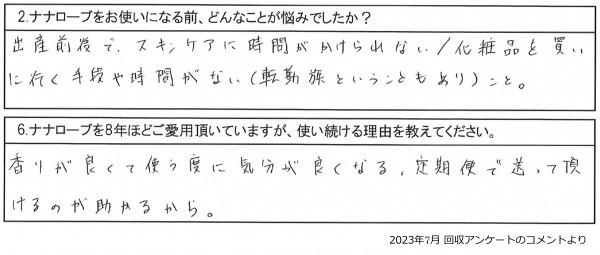 2.ナナローブをお使いになる前、どんなことが悩みでしたか？
出産前後で、スキンケアに時間がかけられない/化粧品を買い
に行く手段や時間がない(転勤族ということもあり)こと。
6.ナナローブを8年ほどご愛用頂いていますが、使い続ける理由を教えてください。
香りが良くて使う度に気分が良くなる、定期便で送って頂
けるのが助かるから。
2023年7月 回収アンケートのコメントより